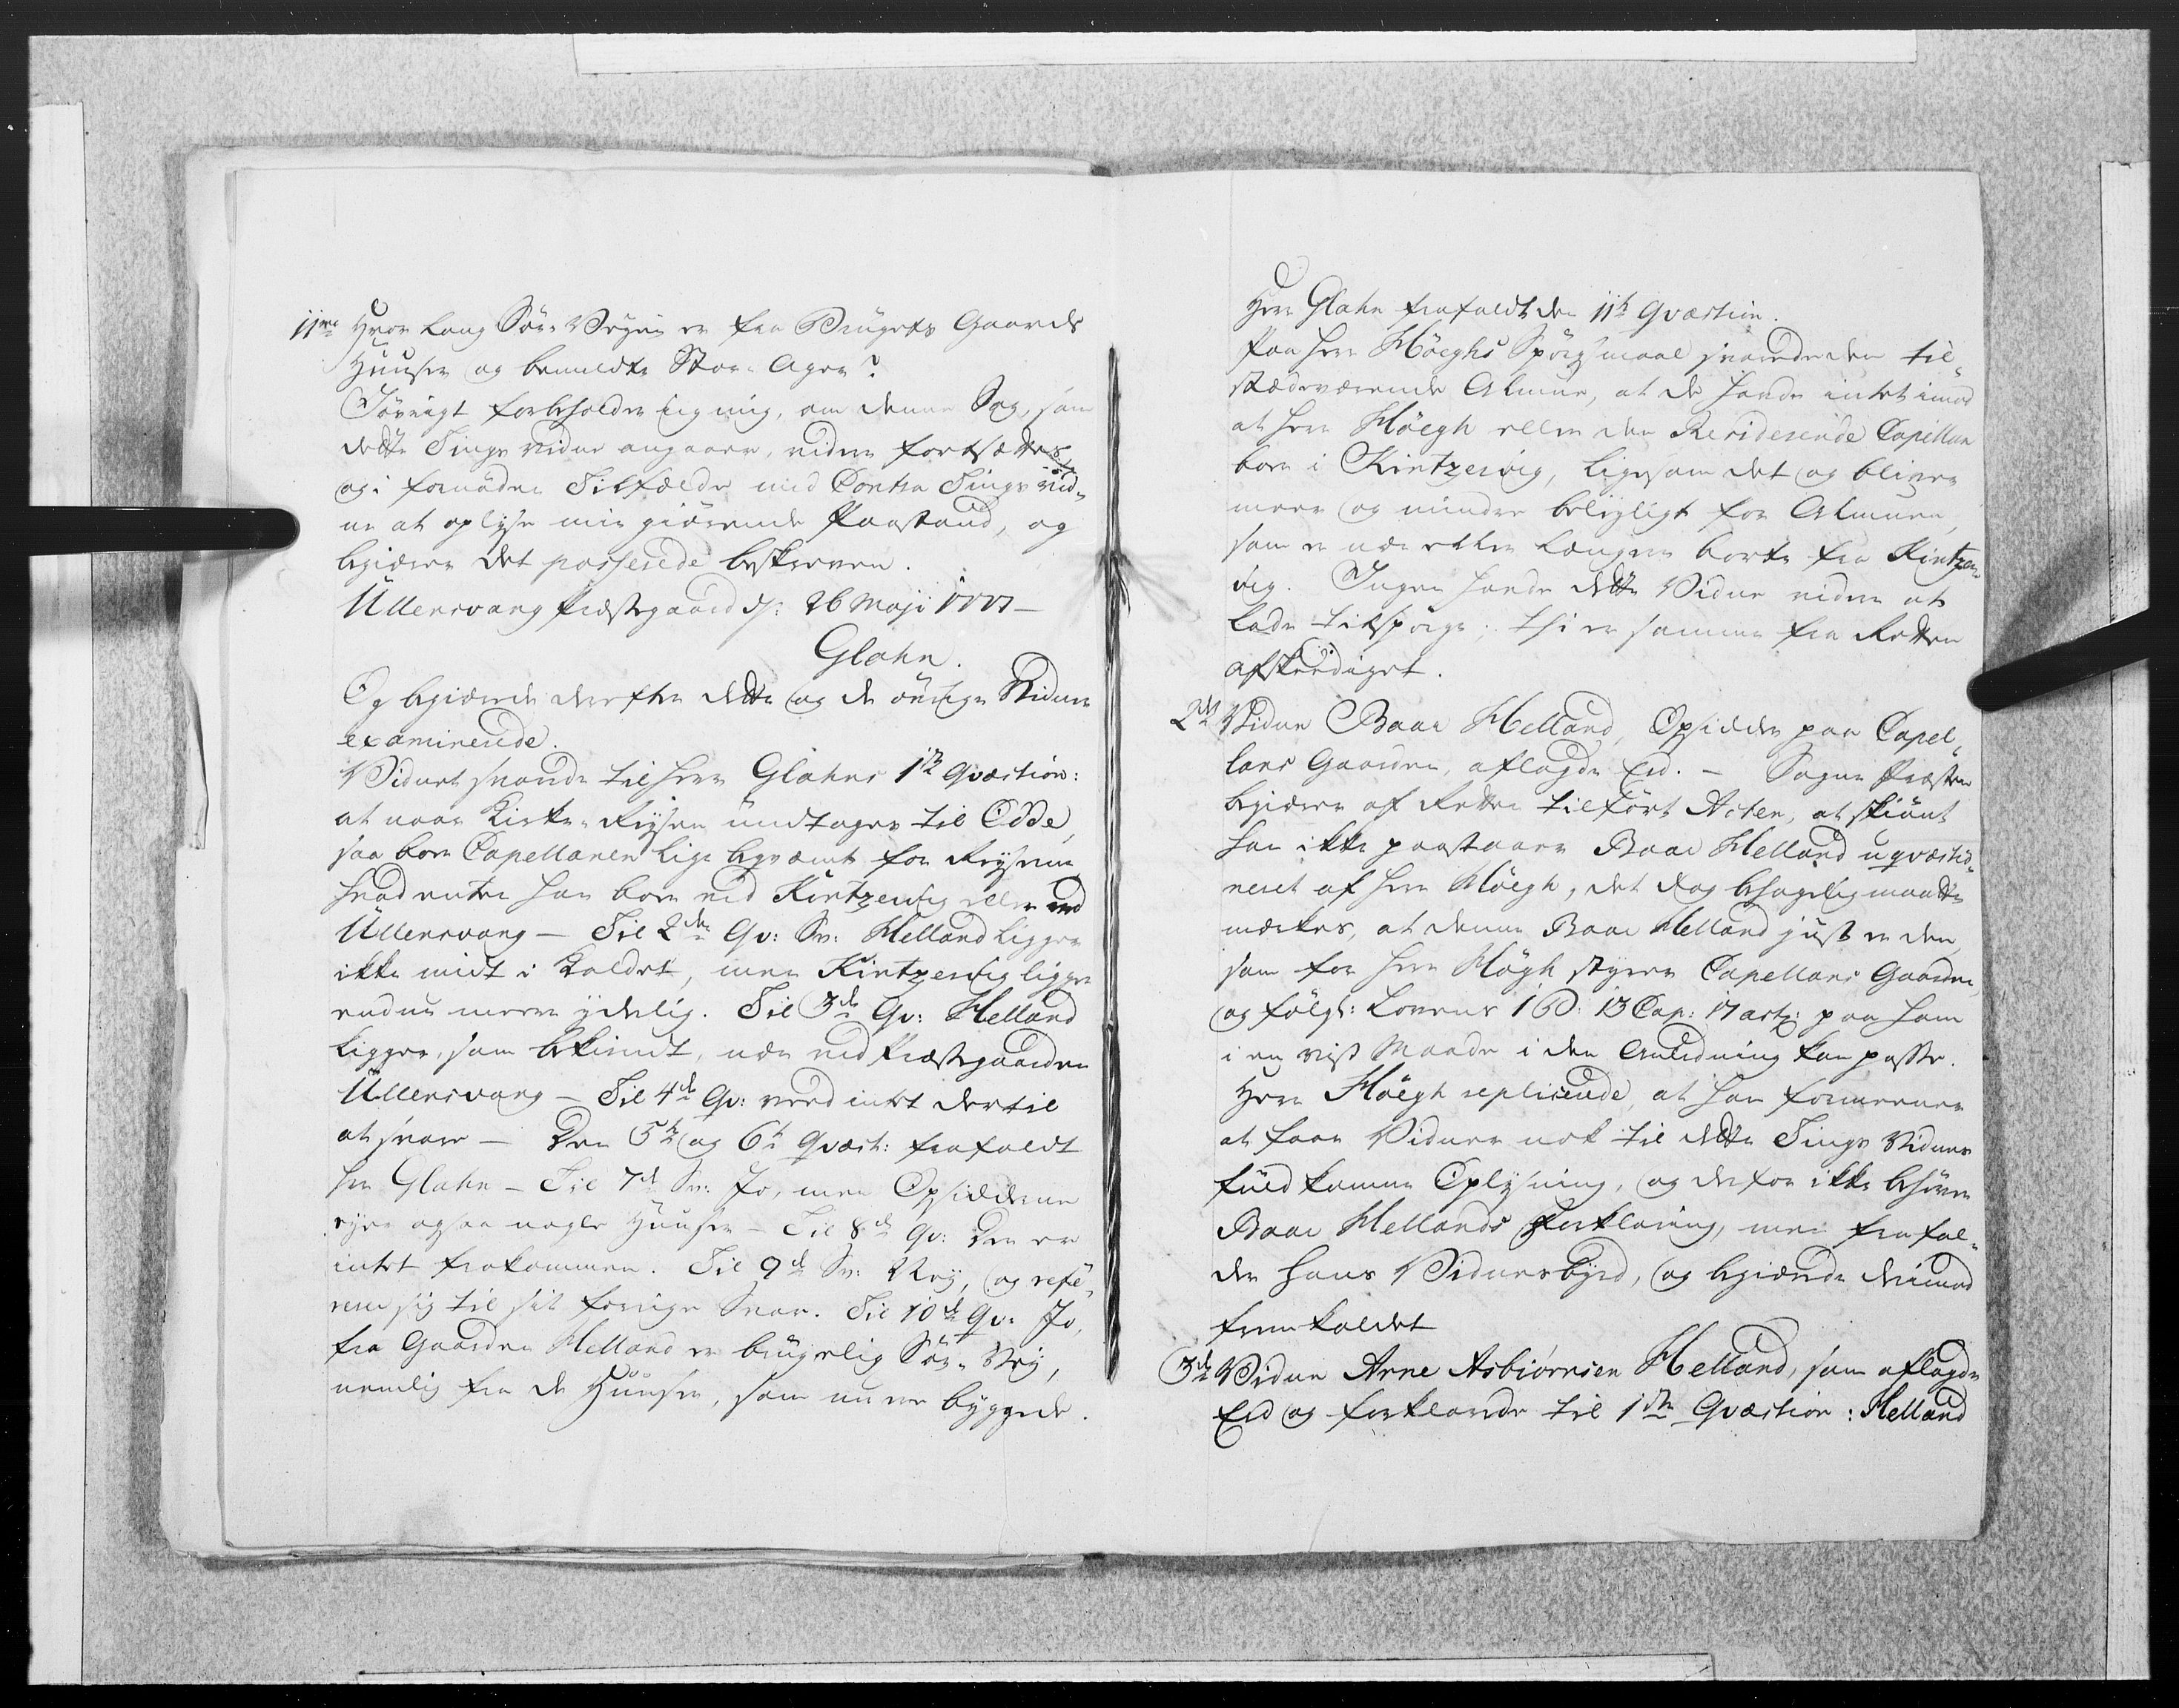 11te Hvor lang Søe-Veyen er fra Brugets Gaards
Huuser og bemeldte Stor-Ager?
Iøvrigt forbeholder ieg mig, om denne Sag, som
dette Tings vidne angaaer, videre fortsættes,
og i fornøden Tilfælde ved Contra Tings vid-
ne at oplyse min giørende Paastand, og
begiærer det passerede beskreven.
Ullensvang Præstegaard d: 26 Maji 1777 —
Glahn.
Og begiærede derefter dette og de øvrige Vidner
examinerede.
Vidnet svarede til Herr Glahns 1te Qvæstion:
at naar Kirke-Reysen undtages til Odde,
saa boer Capellanen lige beqvemt for Reyserne
hvad enten han boer ved Kintzervig eller ved
Ullensvang — Til 2den Qv: Sv: Helland ligger
ikke midt i Kaldet, men Kintzervig ligger
endnu meere ydelig. Til 3de Qv: Helland
ligger, som bekiendt, nær ved Præstegaarden
Ullensvang — Til 4de Qv: veed intet dertil
at svare — Den 5te og 6te Qvæst: frafaldt
Hr Glahn — Til 7de Sv: Jo, men Opsidderne
eyer ogsaa nogle Huuser — Til 8de Qv: Der er
intet frakommen. Til 9de Sv: Ney, og refe-
rerer sig til sit forrige Svar. Til 10de Qv: Jo,
fra Gaarden Helland er brugelig Søe-Vey,
nemlig fra de Huuser, som nu ere byggede.
Herr Glahn frafaldt den 11te Qvæstion.
Paa Herr Høeghs Spørgsmaal svarede den til-
stædeværende Almue, at de havde intet imod
at Herr Høegh eller den Residerende Capellan
boer i Kintzervig, ligesom det og bliver
meer og mindre beleyligt for Almuen,
som er nær eller længere borte fra Kintzer-
vig. Ingen havde dette Vidne videre at
lade tilspørge; thi er samme fra Retten
afskeediget.
2det Vidne Baar Helland, Opsidder paa Capel-
lans Gaarden, aflagde Eed. — Sogne Præsten
begiærer af Retten tilført Acten, at skiønt
han ikke paastaaer Baar Helland uqvæstio-
neret af Herr Høegh, det dog behagelig maatte
mærkes, at denne Baar Helland just er den,
som for Herr Høgh styrer Capellans Gaarden,
og følgl: Lovens 1 B: 13 Cap: 17 art: paa ham
i en vis Maade i den Anledning kan passe.
Herr Høegh replicerede, at han formeener
at faae Vidner nok til dette Tings Vidnes
fuldkomne Oplysning, og derfor ikke behøver
Baar Hellands Forklaring, men frafal-
der hans Vidnesbyrd, og begiærede derimod
fremkaldet
3de Vidne Arne Asbiørnsen Helland, som aflagde
Eed og forklarede til 1ste Qvæstion: Helland